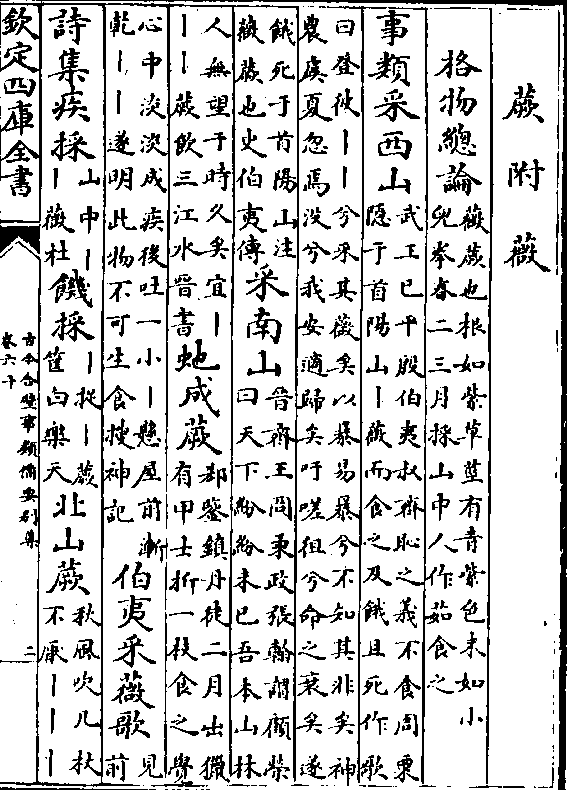 蕨附薇
格物緫論薇蕨也根如紫草莖有青紫色末如小
兒拳春二三月採山中人作茹食之
事類采西山武王已平殷伯夷叔齊恥之義不食周粟
隱于首陽山丨薇而食之及餓且死作歌
曰登彼丨丨兮采其薇矣以暴易暴兮不知其非矣神
農虞夏忽焉没兮我安適歸矣吁嗟徂兮命之衰矣遂
餓死于首陽山注
薇蕨也史伯夷傳
采南山晉齊王冏秉政張翰謂顧榮
曰天下紛紛未已吾本山林
人無望于時久矣宜丨
丨丨蕨飲三江水晉書
虵成蕨郗鑒鎮丹徒二月出獵
有甲士折一枝食之覺
心中淡淡成疾後吐一小丨懸屋前漸
乾丨丨遂明此物不可生食搜神記
伯夷采薇歌見
前
詩集疾採山中丨
丨薇杜
饑採丨捉丨蕨
筐白樂天
北山蕨秋風吹几杖
不厭丨丨丨
欽定四庫全書
古今合璧事類備要别集
卷六十
二